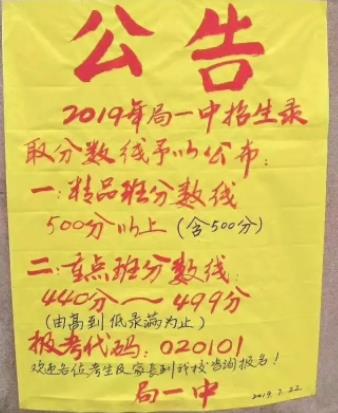 公告
2019年局一中招生录
取分数线予以公布:
一:精品班分数线
500分以上(含500分)
二:重点班分数线:
440分～499分
(由高到低录满为止)
报考代码:020101
欢迎各位考生及家长到我校咨询报名!
局一中
2019.7.22